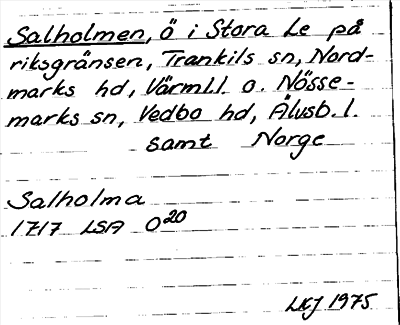 Salholmen, ö i Stora Le på
riksgränsen, Trankils sn, Nord-
marks hd, Värml.l. o. Nösse-
marks sn, Vedbo hd, Älvsb.l.
samt Norge
Salholma
1717 LSA O20
LKJ 1975